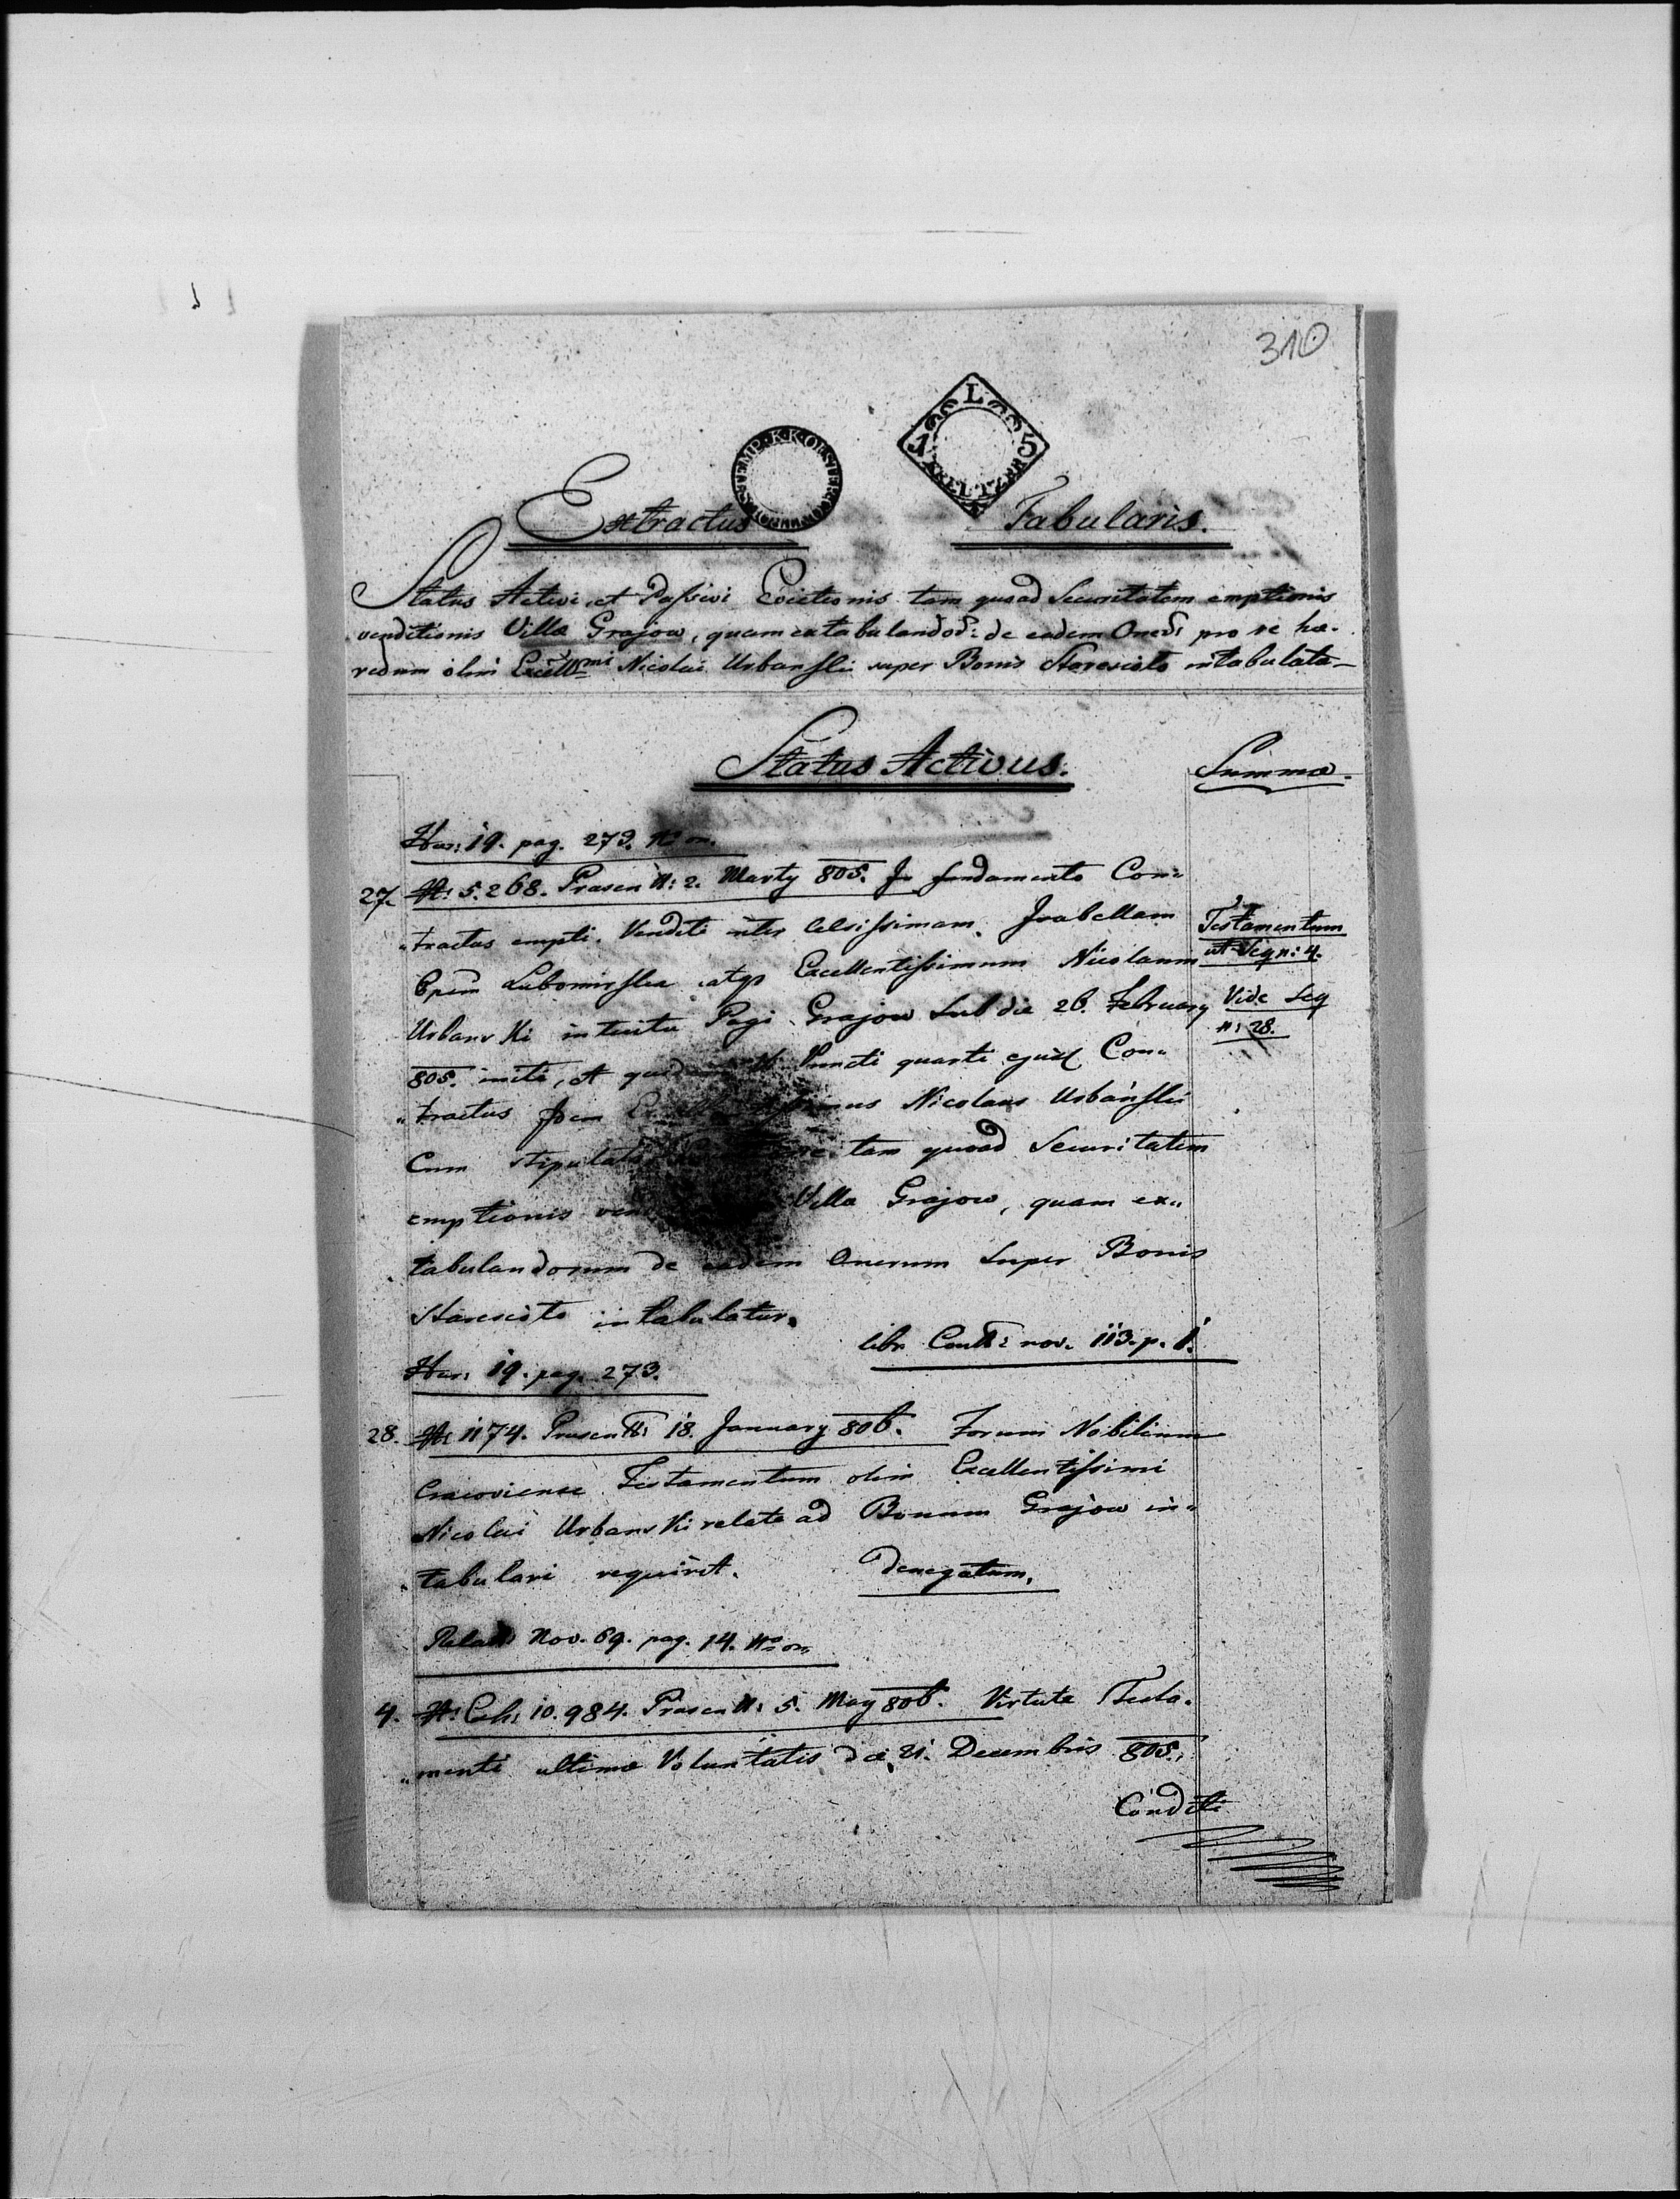 310
L
1 5
KREUTZER
Extractus Tabularis.
Status Activi, et Passivi Evictionis tam quoad Securitatem emptionis
venditionis Villæ Grajow, quam extabulandor: de eadem Oner: pro re hæ-
redum olim Excell̅mi Nicolai Urbanski super Bonis Staresioło intabulatæ
Status Activus.
Summæ.
Hær: 19. pag. 273. no on.
27. N: 5.268. Præsent: 2. Marty 805. In fundamento Con=
"tractus empti. Venditi inter Celsissimam Isabellam
Ppem Lubomirska atqe Excellentissimum Nicolaum
Urbanski intuitu Pagi Grajow Sub die 26. February
805. initi, et Puncti quarti ejusd Con=
"tractus Nicolaus Urbanski
Cum stipulata tam quoad Securitatem
emptionis Villæ Grajow, quam ex=
tabulandorum de eadem Onerum Super Bonis
Staresioło intabulatur.
libr Contr: nov. 113. p. 1.
Testamentum
ut Seq n: 4.
Vide Seq
n: 28.
Hær: 19. pag. 273.
28. N: 1174. Præsent: 18. January 806. Forum Nobilium
Cracoviense Testamentum olim Excellentissimi
Nicolai Urbanski relate ad Bonum Grajow in=
"tabulari requirit. Denegatum.
Relat: Nov. 69. pag. 14. no on.
4. N: Exh: 10.984. Præsent: 5. May 806. Virtute Testa=
"menti ultimæ Voluntatis de 21. Decembris 805.
Conditi